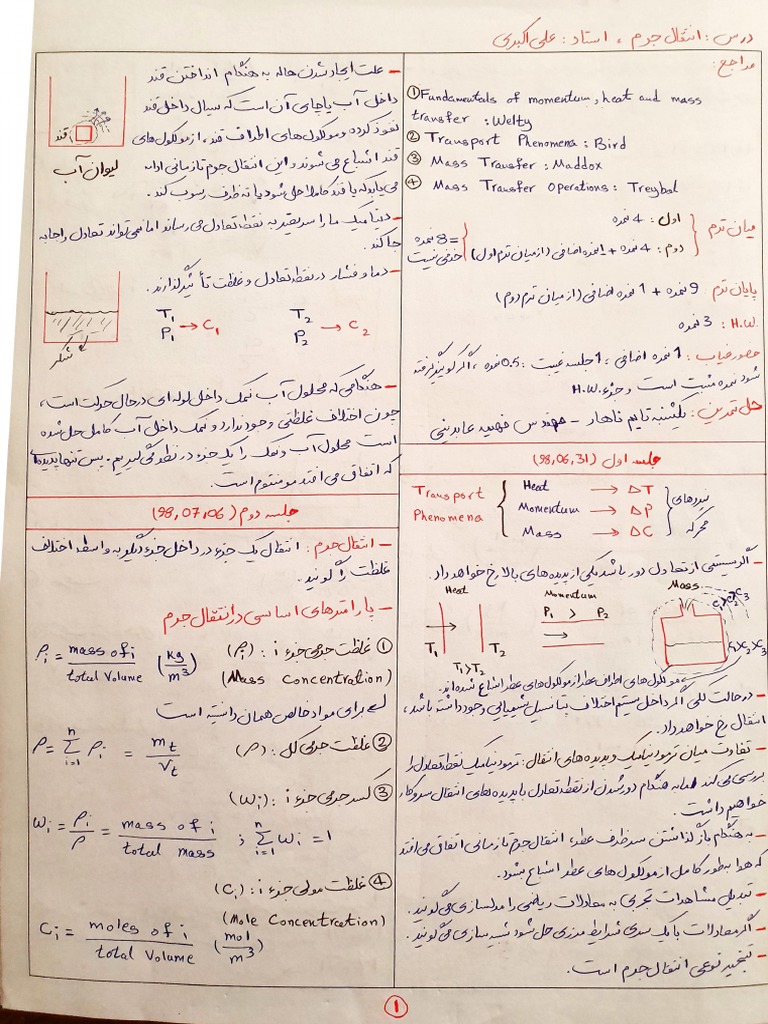 درس: انتقال جرم ، استاد: علی اکبری
مراجع:
① Fundamentals of momentum, heat and mass
transfer : Welty
② Transport Phenomena : Bird
③ Mass Transfer : Maddox
④ Mass Transfer Operations : Treybal
میان ترم { اول: 4 نمره
دوم: 4 نمره + 1 نمره اضافی (از میان ترم اول) } = 8 نمره حذفی نیست
پایان ترم: 9 نمره + 1 نمره اضافی (از میان ترم دوم)
H.W. : 3 نمره
حضور غیاب: 1 نمره اضافی ، 1 جلسه غیبت: 0.5 نمره ، اگر کوئیز گرفته
شود نمره مثبت است و جزء H.W.
حل تمرین: یکشنبه تایم ناهار - مهندس فهیمه عابدینی
جلسه اول (98,06,31)
Transport Phenomena { Heat → ΔT
Momentum → ΔP
Mass → ΔC } نیروهای محرکه
- اگر سیستمی از تعادل دور باشد یکی از پدیده های بالا رخ خواهد داد.
Heat
T₁ T₂
T₁>T₂
Momentum
P₁ > P₂
Mass
C₁>C₂>C₃
مولکول های اطراف عطر از مولکول های عطر اشباع شده اند.
- در حالت کلی اگر داخل سیستم اختلاف پتانسیل شیمیایی وجود داشته باشد،
انتقال رخ خواهد داد.
- تفاوت میان ترمودینامیک و پدیده های انتقال: ترمودینامیک نقطه تعادل را
بررسی می کند اما به هنگام دور شدن از نقطه تعادل با پدیده های انتقال سروکار
خواهیم داشت.
- به هنگام باز گذاشتن سر ظرف عطر، انتقال جرم تا زمانی اتفاق می افتد
که هوا به طور کامل از مولکول های عطر اشباع بشود.
- تبدیل مشاهدات تجربی به معادلات ریاضی را مدلسازی می گویند.
- اگر معادلات با یک سری شرایط مرزی حل شود شبیه سازی می گویند.
- تبخیر نوعی انتقال جرم است.
- علت ایجاد شدن هاله به هنگام انداختن قند
داخل آب یا چای آن است که سیال داخل قند
نفوذ کرده و مولکول های اطراف قند، از مولکول های
قند اشباع می شوند و این انتقال جرم تا زمانی ادامه
می یابد که یا قند کاملا حل شود یا ته ظرف رسوب کند.
قند
لیوان آب
- دینامیک ما را سریعتر به نقطه تعادل می رساند اما نمی تواند تعادل را جابه
جا کند.
- دما و فشار در نقطه تعادل و غلظت تأثیر گذارند.
T₁ P₁ → C₁
T₂ P₂ → C₂
شکر
- هنگامی که محلول آب نمک داخل لوله ای در حال حرکت است،
چون اختلاف غلظتی وجود ندارد و نمک داخل آب کامل حل شده
است محلول آب و نمک را یک جزء در نظر می گیریم. پس تنها پدیده ای
که اتفاق می افتد مومنتوم است.
جلسه دوم (98,07,06)
- انتقال جرم: انتقال یک جزء در داخل جزء دیگر به واسطه اختلاف
غلظت را گویند.
- پارامترهای اساسی در انتقال جرم
① غلظت جرمی جزء i : (ρᵢ)
(Mass Concentration)
ρᵢ = mass of i / total Volume (kg/m³)
↳ برای مواد خالص همان دانسیته است
② غلظت جرمی کل: (ρ) ρ = Σⁿᵢ₌₁ ρᵢ = mt / Vt
③ کسر جرمی جزء i : (ωᵢ)
ωᵢ = ρᵢ/ρ = mass of i / total mass ; Σⁿᵢ₌₁ ωᵢ = 1
④ غلظت مولی جزء i : (Cᵢ)
(Mole Concentration)
Cᵢ = moles of i / total Volume (mol/m³)
1